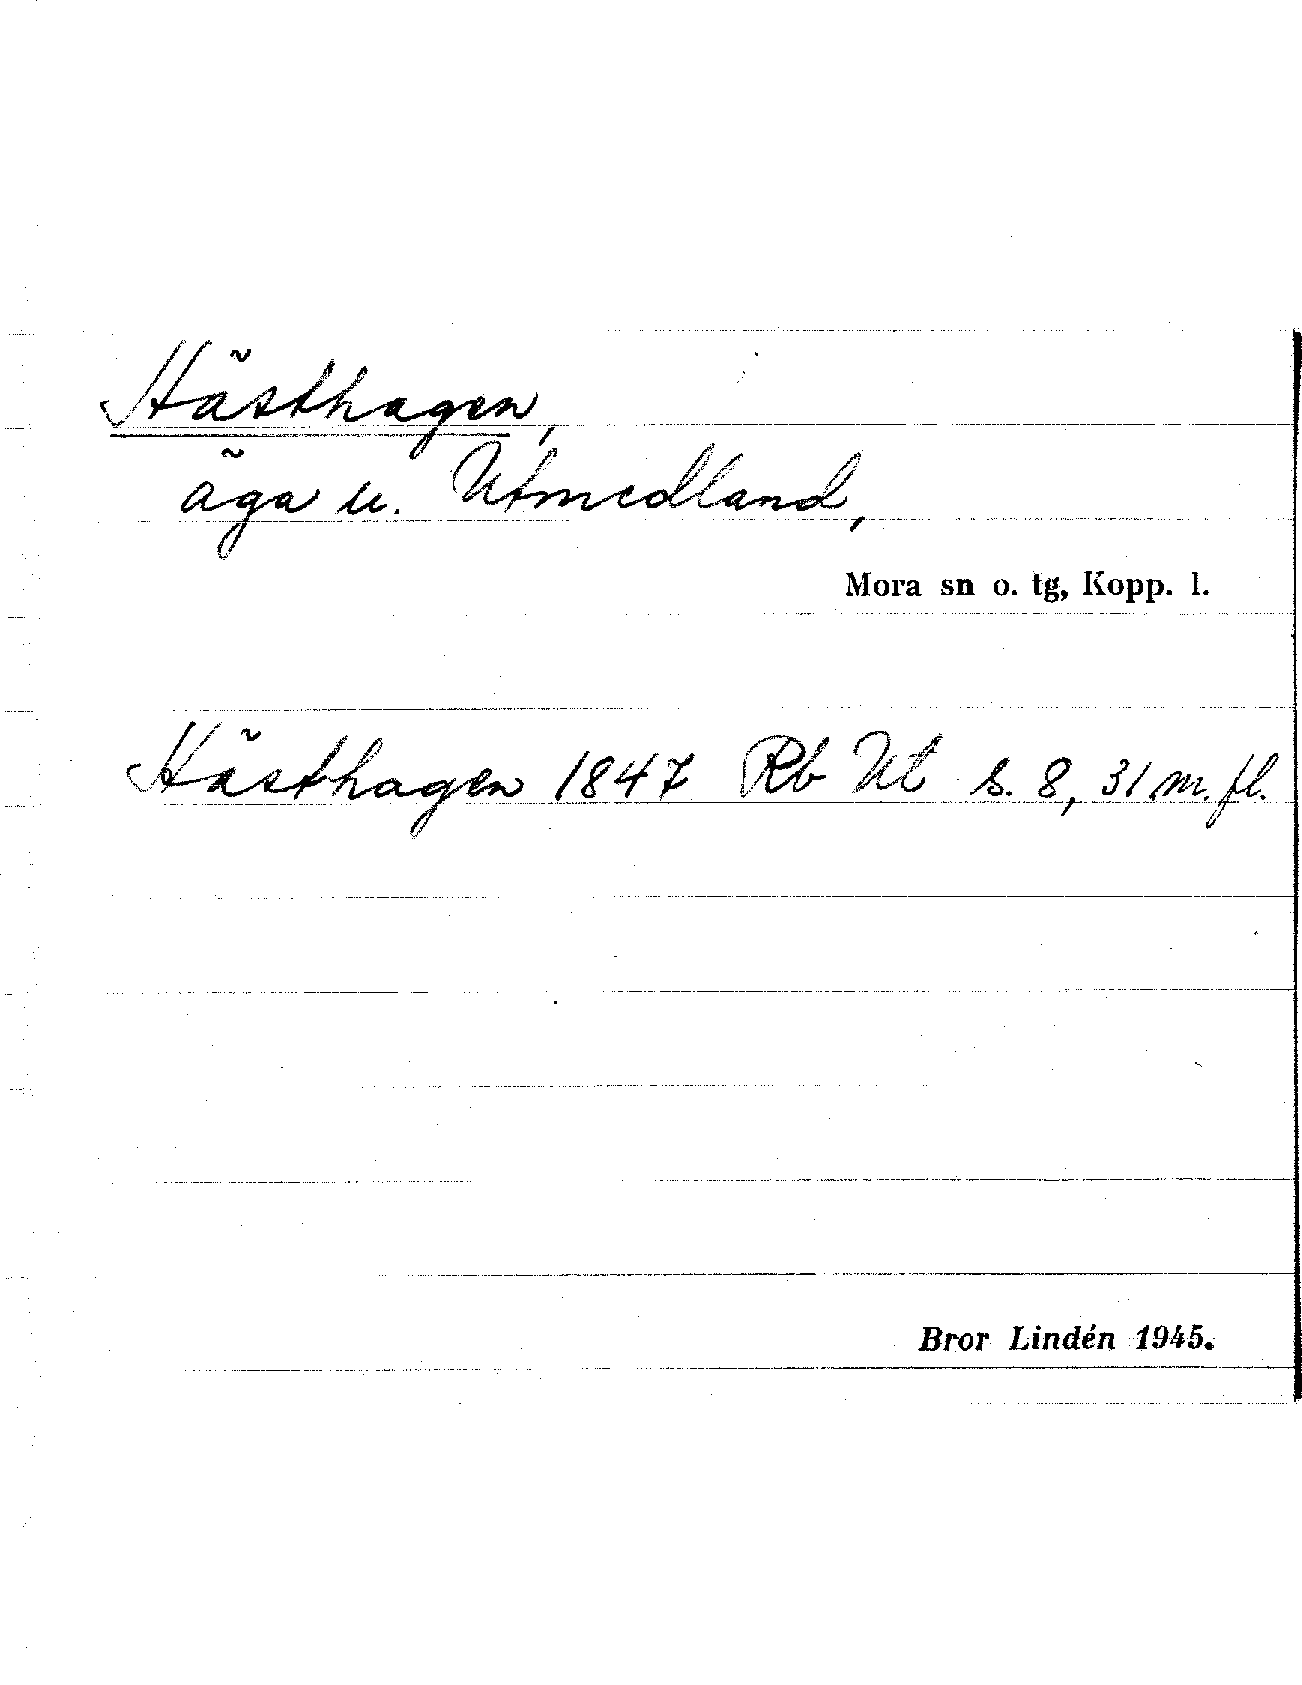 Hästhagen,
äga u. Utmedland,
Mora sn o. tg, Kopp. l.
Hästhagen 1847 Rb Ut s. 8, 31 m. fl.
Bror Lindén 1945.